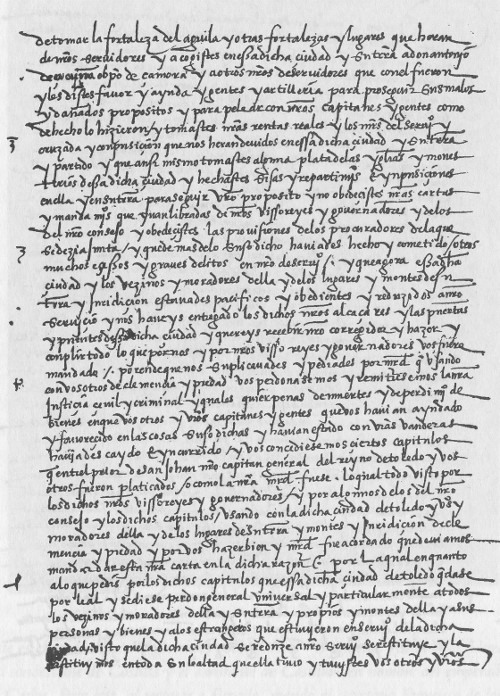 de tomar la fortaleza del aguila y otras fortalezas y lugares que heran
de nros servidores y acogistes en essa dicha ciudad y su trra a don antonio
de acuña obpo de camora y a otros nros deservidores que con el fueron
y les distes favor y ayuda y gentes y artilleria para proseguir sus malos
y dañados propositos y para pelear con nros capitanes y gentes como
de hecho lo hizieron / y tomastes nras rentas reales y los mrs del servio y
cruzada y conpusicion que nos heran devidos en essa dicha ciudad y su trra
y partido y que ansi mismo tomastes alguna plata de las yglias y mones
terios dessa dicha ciudad y hechastes sisas y repartimios e ynpusiciones
en ella y en su trra para seguir vro proposito y no obedecistes nras cartas
y mandamios que yvan libradas de nros vissorreyes y governadores y de los
del nro consejo y obedecistes las provisiones de los procuradores de la que
se dezia junta / y que demas de lo suso dicho haviades hecho y cometido / otros
muchos excessos y graves delitos en nro deservio / y que agora essa dha
ciudad y los vezinos y moradores della y de los lugares de montes de su
trra y juridicion estavades pacificos y obedientes y reduzidos a nro
servicio y nos haveys entregado los dichos nros alcacares y las puertas
y puentes dessa dicha ciudad y quereys recebir nro corregidor y hazer y
conplir todo lo que por nos y por nros visso reyes y governadores vos fuere
mandado / por ende que nos suplicavades y pediades por mrd que usando
con vosotros de clemencia y piedad vos perdonasemos y remitiesemos la nra
justicia cevil y criminal y quales quier penas de muertes y de perdimio de
bienes en que vos otros y vros capitanes y gentes que vos havian ayudado
y favorecido en las cosas suso dichas y havian estado con vras vanderas
haviades caydo e yncurrido / y vos concediesemos ciertos capitulos
que entre el prior de san johan nro capitan general del reyno de toledo y vos
otros fueron platicados / o como la nra mrd fuese. lo qual todo visto por
los dichos nros vissorreyes y governadores / y por algunos de los del nro
consejo y los dichos capitulos / usando con la dicha ciudad de toledo y vos y
moradores della y de los lugares de su trra y montes y juridicion de cle
mencia y piedad y por vos hazer bien y mrd fue acordado que deviamos
mandar dar esta nra carta en la dicha razon E por la qual en quanto
a lo que pedis por los dichos capitulos que essa dicha ciudad de toledo quedase
por leal y se diese perdon general universal y particularmente a todos
los vezinos y moradores della y su trra y propios y montes della y a sus
personas y bienes y a los estrangeros que estuvieron en servio de la dicha
ciudad / visto que la dicha ciudad se reduze a nro servio se restituye y la
restituymos en toda su lealtad que ella tuvo y tuvistes vos otros y vros